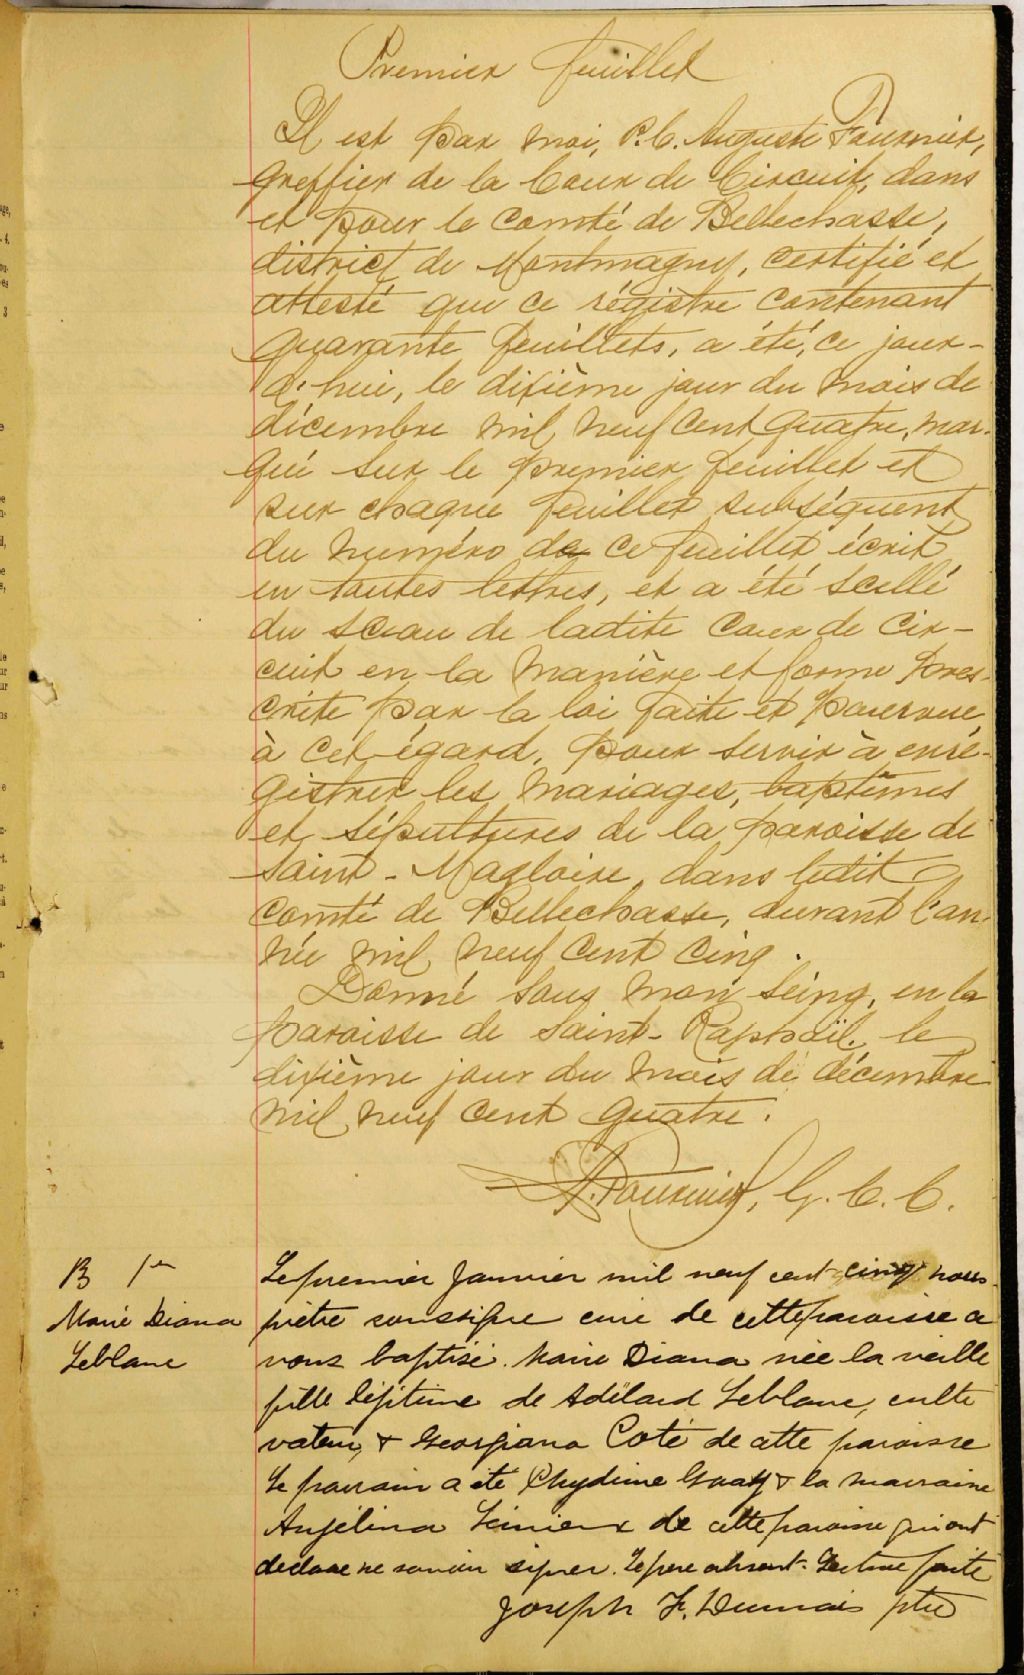 Premier feuillet
Il est par moi, P.C. Auguste Fournier,
greffier de la Cour de Circuit, dans
et pour le comté de Bellechasse,
district de Montmagny, certifié et
attesté que ce régistre contenant
quarante feuillets, a été, ce jour-
d'hui, le dixième jour du mois de
décembre mil neuf cent quatre, mar-
qué sur le premier feuillet et
sur chaque feuillet subséquent
du numéro de ce feuillet écrit
en toutes lettres, et a été scellé
du sceau de ladite Cour de Cir-
cuit en la manière et forme pres-
crite par la loi faite et pourvue
à cet égard, pour servir à enré-
gistrer les mariages, baptêmes
et sépultures de la paroisse de
Saint-Magloire, dans ledit
comté de Bellechasse, durant l'an-
née mil neuf cent cinq.
Donné sous mon seing, en la
paroisse de Saint-Raphaël, le
dixième jour du mois de décembre
mil neuf cent quatre.
A. Fournier, G. C. C.
B 1er
Marie Diana
Leblanc
Le premier Janvier mil neuf cent cinq nous
prêtre soussigné curé de cette paroisse a
vons baptisé Marie Diana née la veille
fille légitime de Adélard Leblanc, culti
vateur, & Georgiana Coté de cette paroisse
Le parrain a été Phydime & la marraine
Angélina Lemieux de cette paroisse qui ont
declaré ne savoir signer. Le pere absent. Lecture faite
Joseph F. Dumais ptre